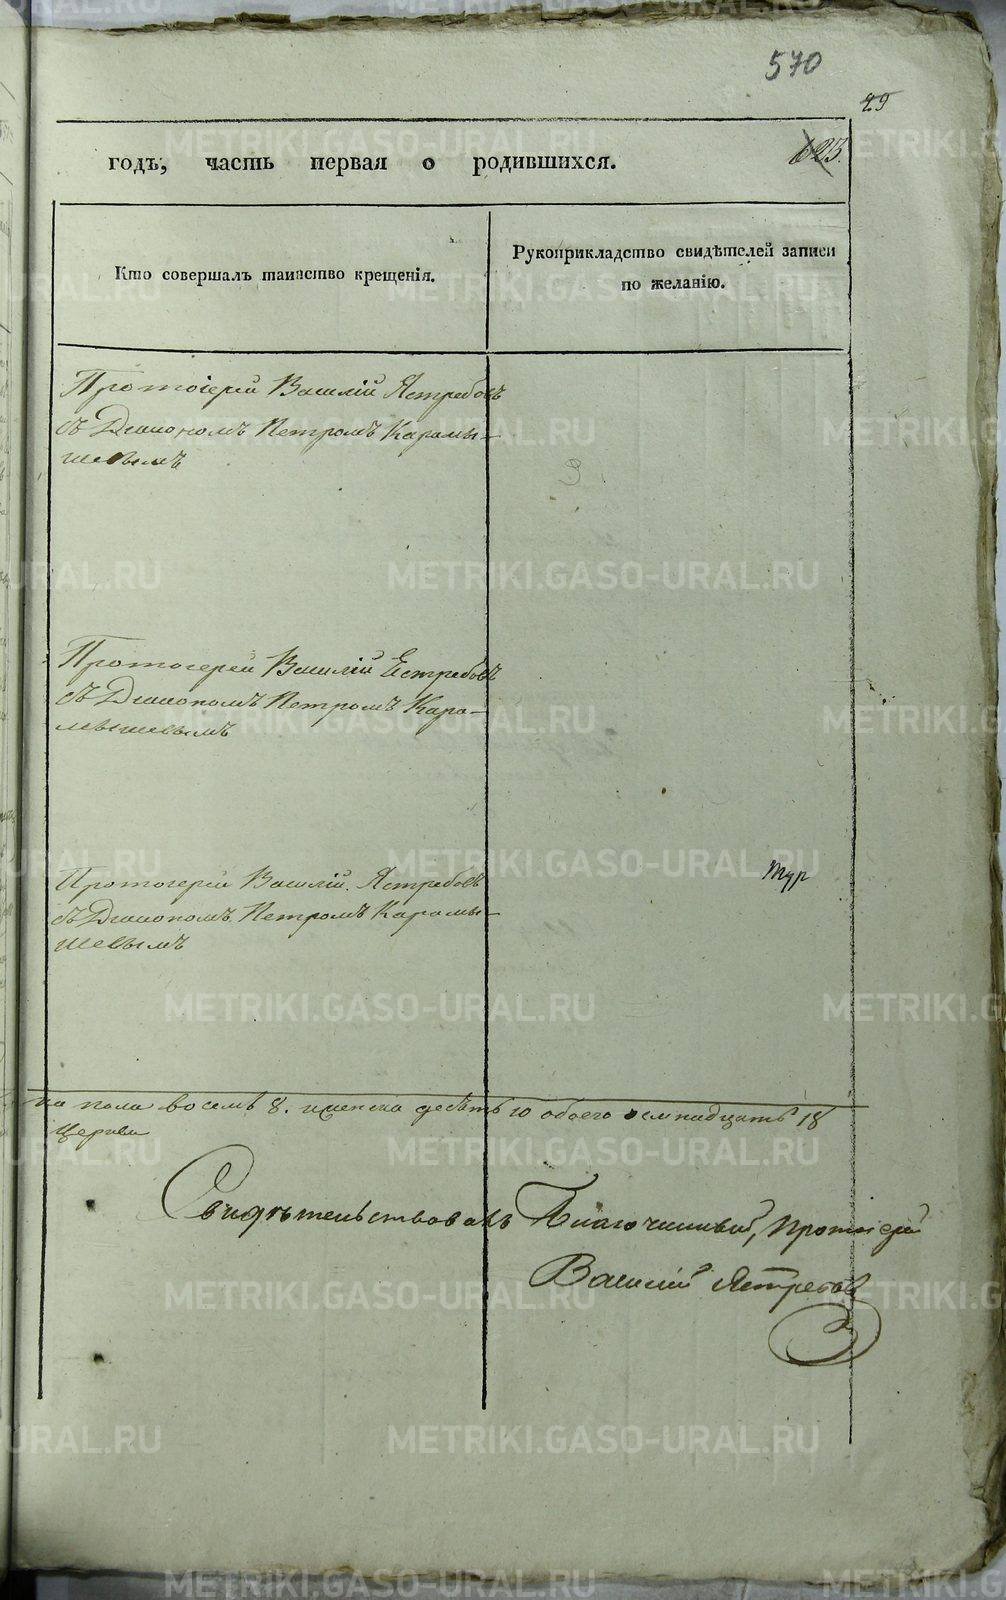 570
29
623.
годъ, часть первая о родившихся.
Кто совершалъ таинство крещенія.
Рукоприкладство свидѣтелей записи
по желанію.
Протоіерей Василій Ястребовъ
съ Діакономъ Петромъ Карамы-
шевымъ
Протоіерей Василій Естребовъ
съ Діакономъ Петромъ Кара-
мышевымъ
Протоіерей Василій Ястребовъ
съ Діакономъ Петромъ Карамы-
шевымъ
пола восемь 8. женска десять 10 обоего осмнадцать 18
Церкви
Свидѣтельствовалъ Благочинный, Протоіерей
Василій Ястребовъ
METRIKI.GASO-URAL.RU